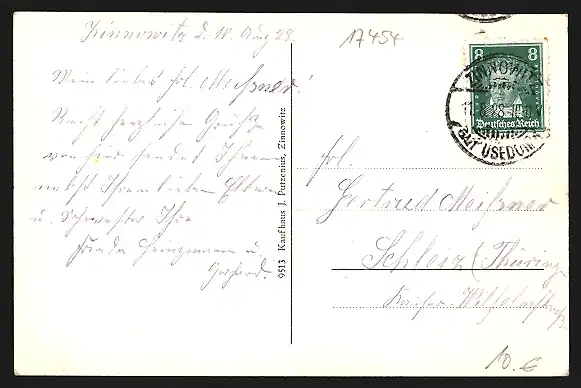 Zinnowitz d. 10. Aug 28.
Mein liebes Frl. Meißner!
Recht herzliche Grüße
von hier sendet Ihnen
nebst Ihren lieben Eltern
u. Schwester Ihre
Frieda u.
Gerhard.
9513 Kaufhaus J. Putzenius, Zinnowitz
17454
8 8
Deutsches Reich
ZINNOWITZ
AUF USEDOM
Frl.
Gertrud Meißner
Schleiz (Thüring.
Kaiser-Wilhelmstraße
10.€